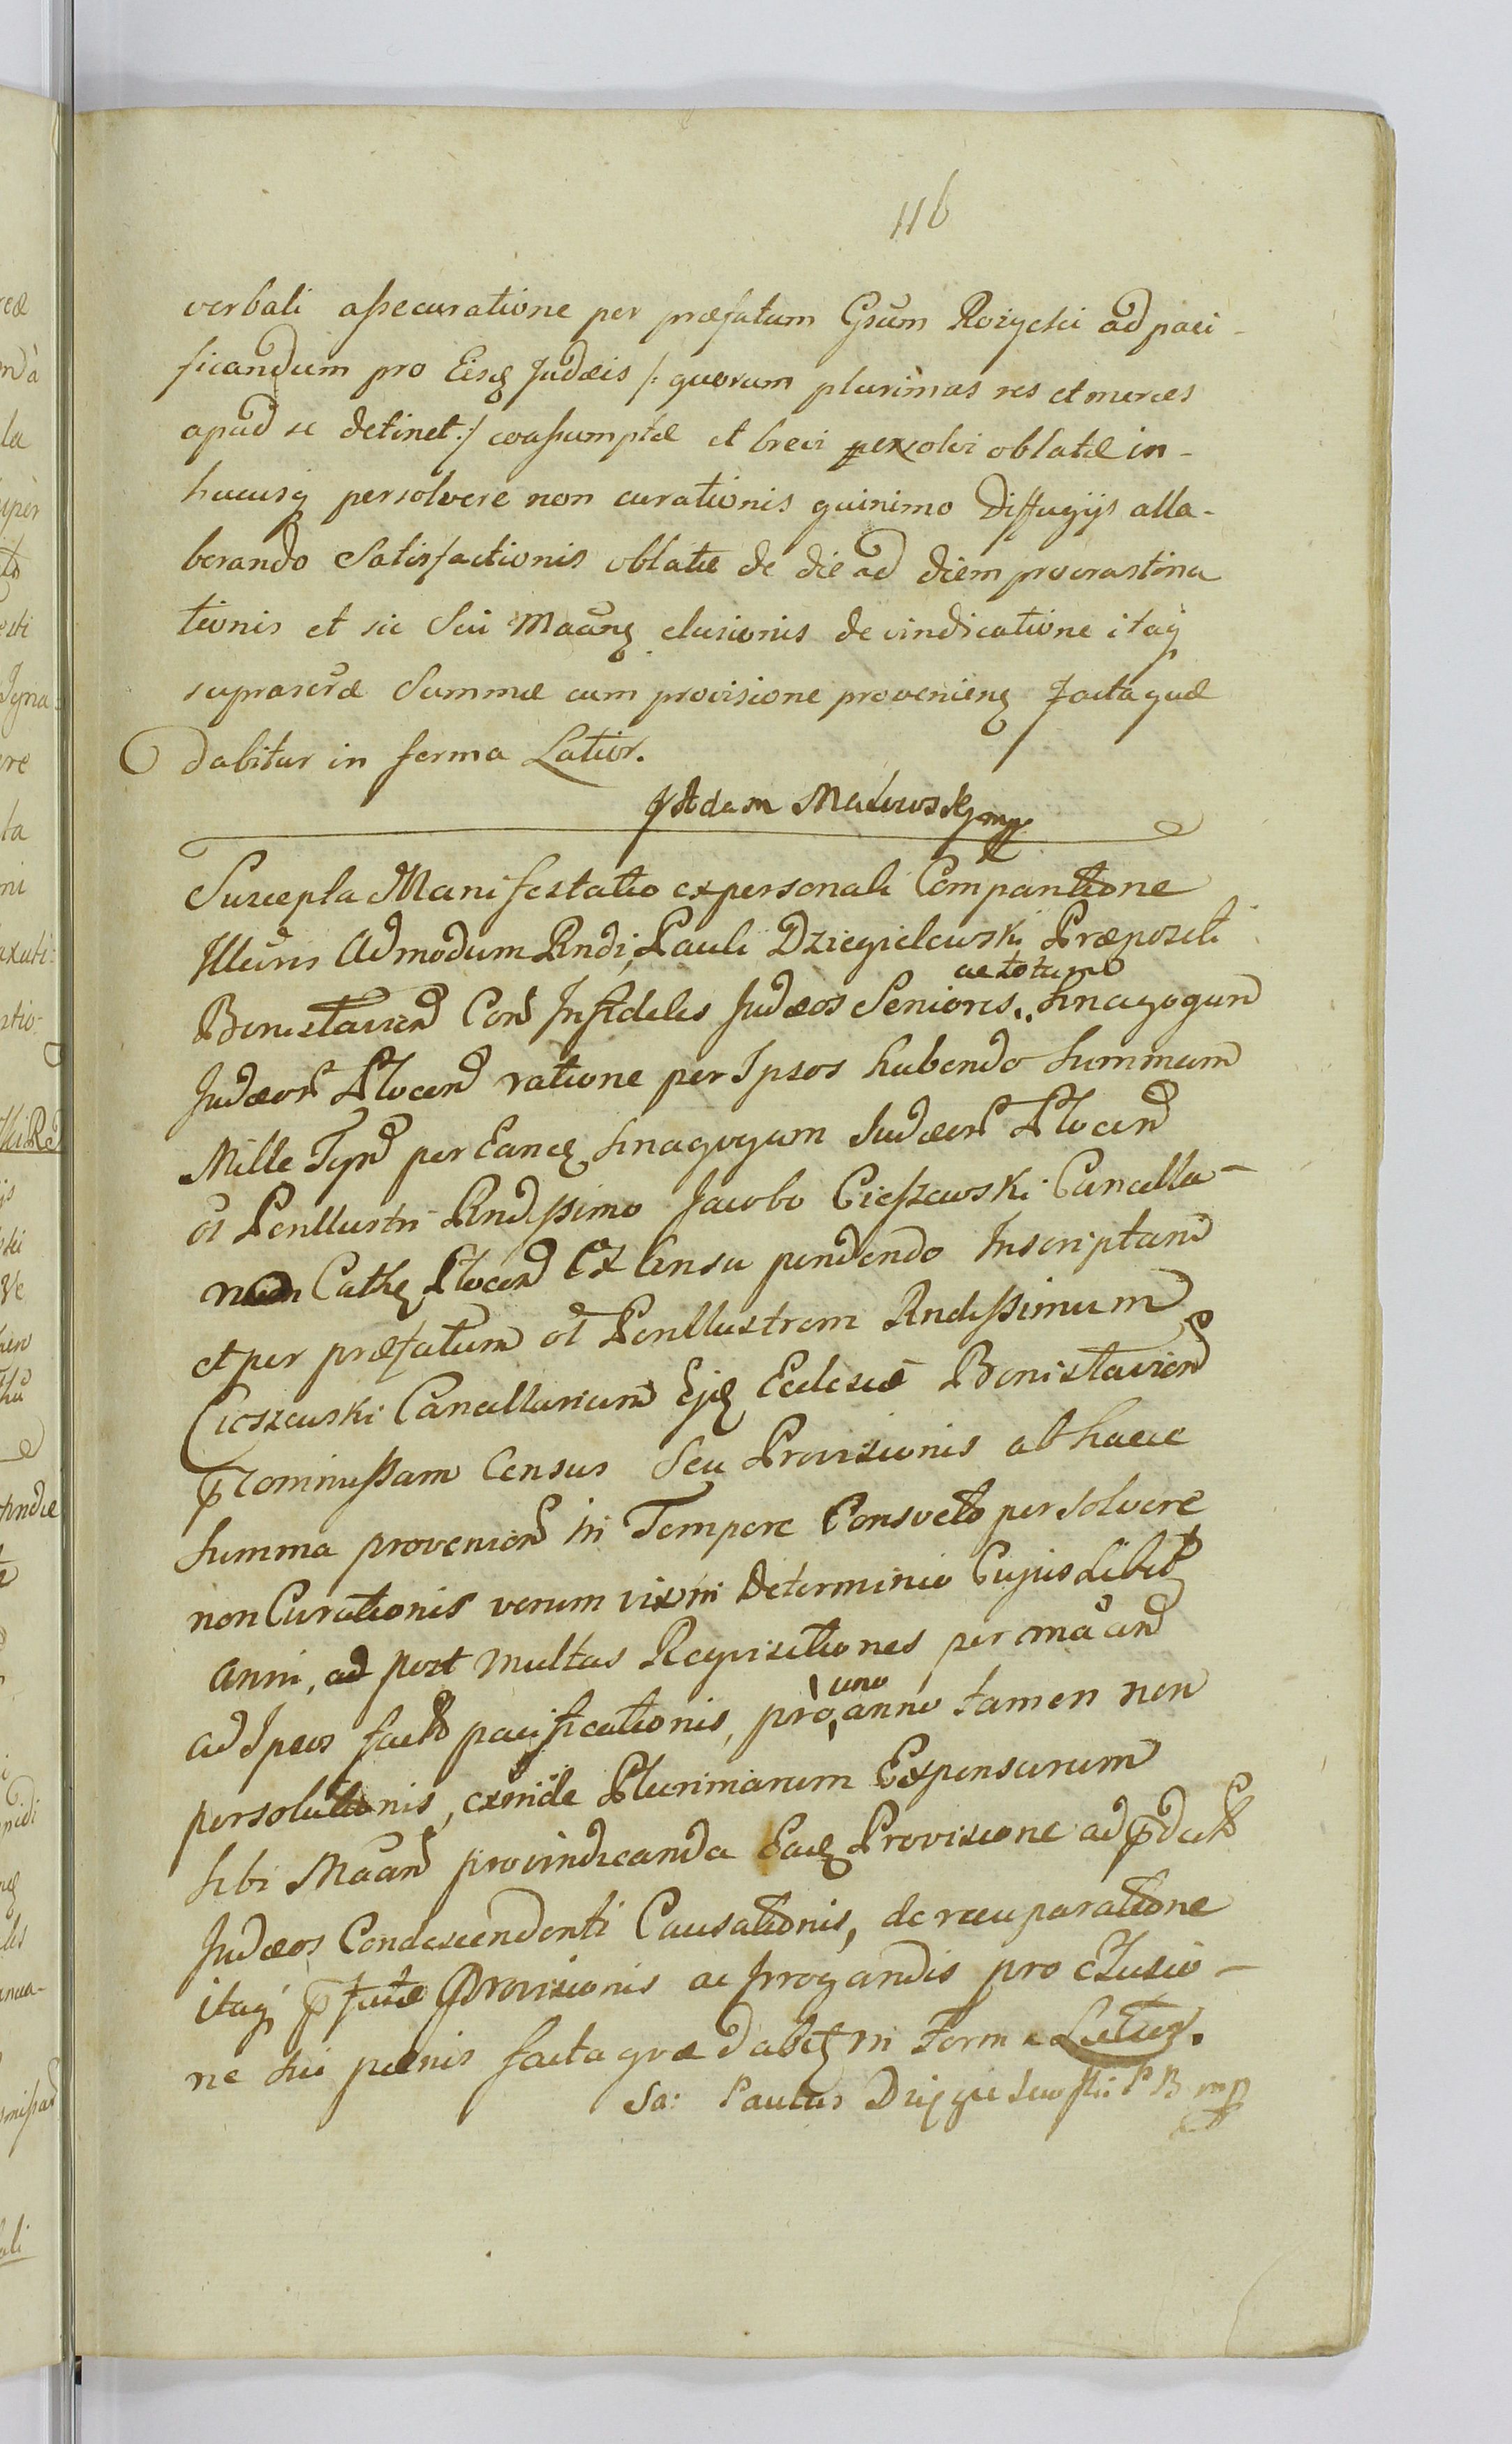 116
verbali assecuratione per præfatum Gsum Rożycki ad paci-
ficandum pro Eisq Judæis /: quorum plurimas res et merces
apud se detinet :/ coassumptæ et brevi perxolvi oblatæ in-
hucusq persolvere non curationis quinimo Diffugijs alla-
borando Satisfactionis oblatæ de die ad diem procrastina
tionis et sic Sui Maanq elusionis de vindicatione itaq
suprascræ Summæ cum provisione provenienq facta quæ
dabitur in forma Latior.
Adam Makowski mp
Suscepta Manifestatio ex personali Comparitione
Illuris Admodum Rndi Pauli Dziegielewski Præpositi
ac totam
Bonislavien Con Infideles Judæos Seniores Sinagogam
Judæor Plocen ratione per Ipsos habendo Summam
Mille Tynf per Eancq Sinagogam Judæor Plocen
ol Perillustri Rndissimo Jacobo Cieszewski Cancella-
rio Cathq Plocen Ex Censu pendendo Inscriptam
et per præfatum ol Perillustrem Rndissimum
Cieszewski Cancellarium Ejq Ecclesiæ Bonislavien
commissam Census Seu Provisionis ab haece
Summa provenien in Tempore Consveto persolvere
non Curationis verum vix in Determinio Cujuslibet
anni, ad post multas Reqvisitiones per maan
ad Ipsos fact pacificationis, pro uno anno tamen non
persolutionis, exinde Plurimarum Expensarum
Sibi Maan provindicanda Eaq Provisione ad pdict
Judæos Condescendenti Causationis, de recuperatione
itaq pfatæ Provisionis ac irrogandis pro Elusio-
ne Sui pænis facta qvæ dabitq in Forma Latior.
Sa: Paulus P B mp